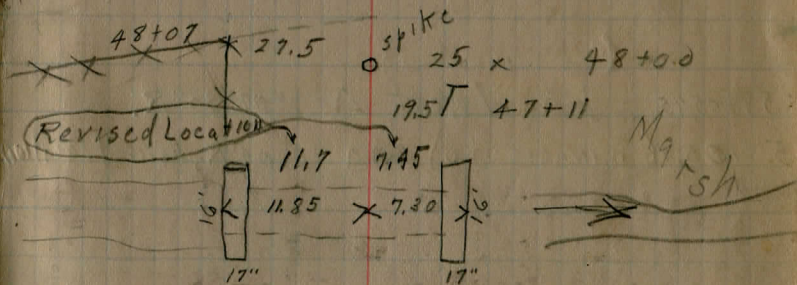 48+07 27.5 spike 25 x 48+0.0
19.5 47+11
Revised Location 11.7 7.45 Marsh
11.85 7.30
17" 17"